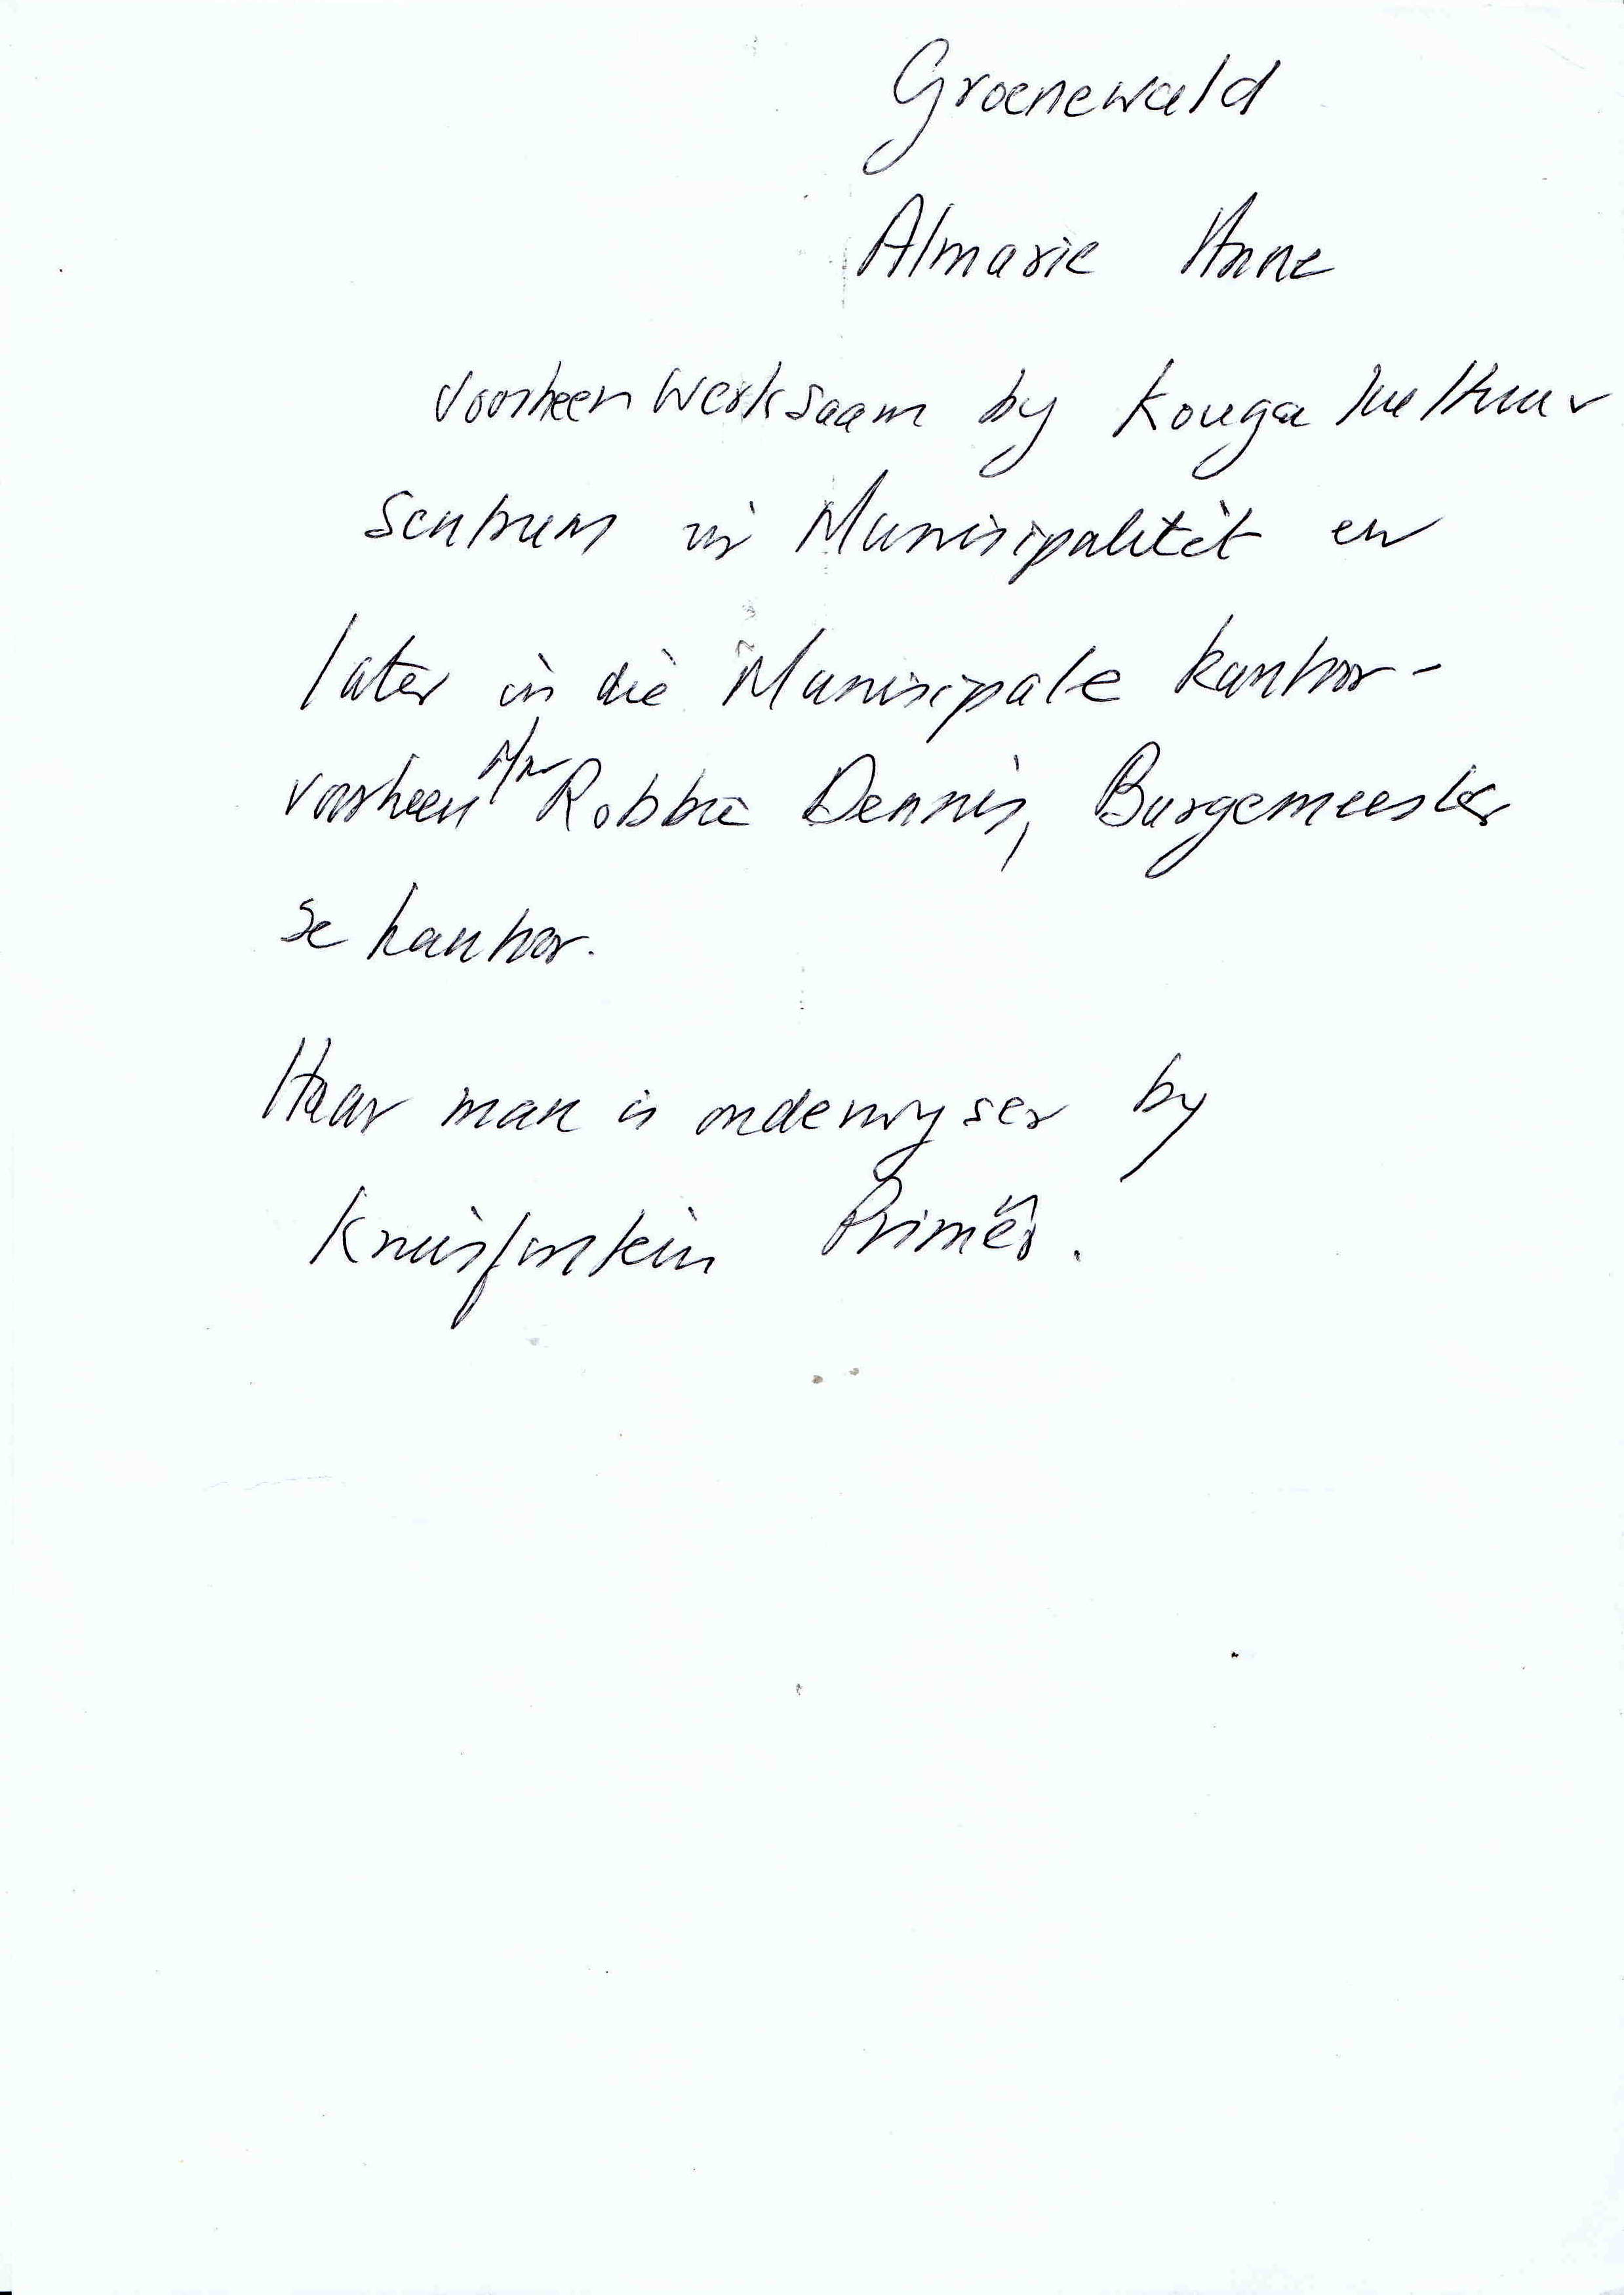 Groenewald
Almarie Anne
Voorheen Werksaam by Kouga Kultuur
Sentrum in Munisipaliteit en
later in die Munisipale kantoor-
voorheen Mnr Robbie Dennis, Burgemeester
se kantoor.
Haar man is onderwyser by
Kruisfontein Primêr.